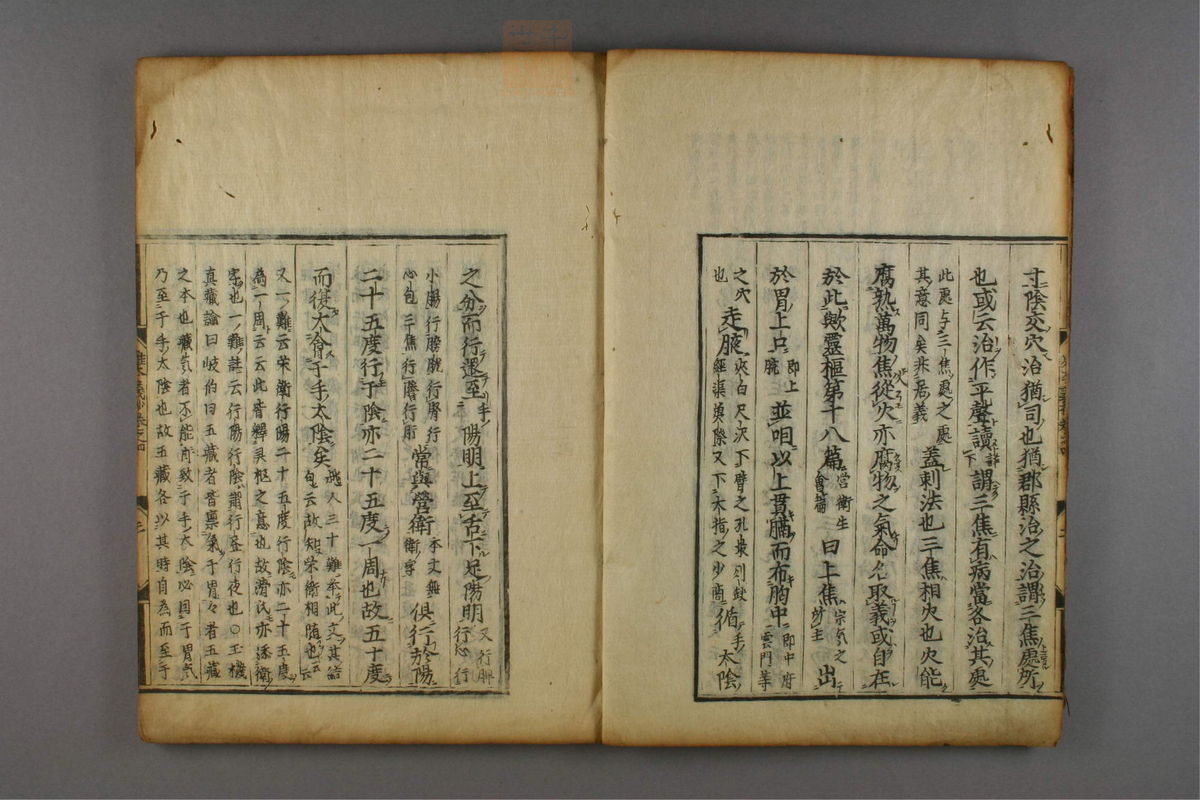 寸陰交穴治猶司也猶郡縣治之治謂三焦處所
也或云治作平聲讀謂三焦有病當各治其處
此處与三焦處之處
其意同矣非居義
蓋刺法也三焦相火也火能
腐熟萬物焦從火亦腐物之氣命名取義或自在
於此歟靈樞第十八篇
營衛生
會篇
曰上焦
宗氣之
出
於胃上口
即上
脘
並咽以上貫膈而布胸中
即中府
雲門等
之穴
也
走腋
夾白尺沢下臂之孔最列缺
經渠魚際又下大指之少商
循手太陰
之分而行還至手陽明上至舌下足陽明
又行脾
行心行
小腸行膀胱行腎行
心包三焦行膽行肝
常與營衛
本文無
衛字
俱行於陽
二十五度行于陰亦二十五度一周也故五十度
而復太會于手太陰矣
人三十難举此文其結
包云故知栄衛相随也云
又一難云栄衛行陽二十五度行陰亦二十五度
為一周云云此皆釋灵樞之意也故滑氏亦添衛
字也一難註云行陽行陰謂行昼行夜也○玉機
真藏論曰岐伯曰五藏者皆禀氣于胃々者五藏
之本也藏氣者不能自致于手太陰必因于胃氣
乃至于手太陰也故五藏各以其時自為而至于